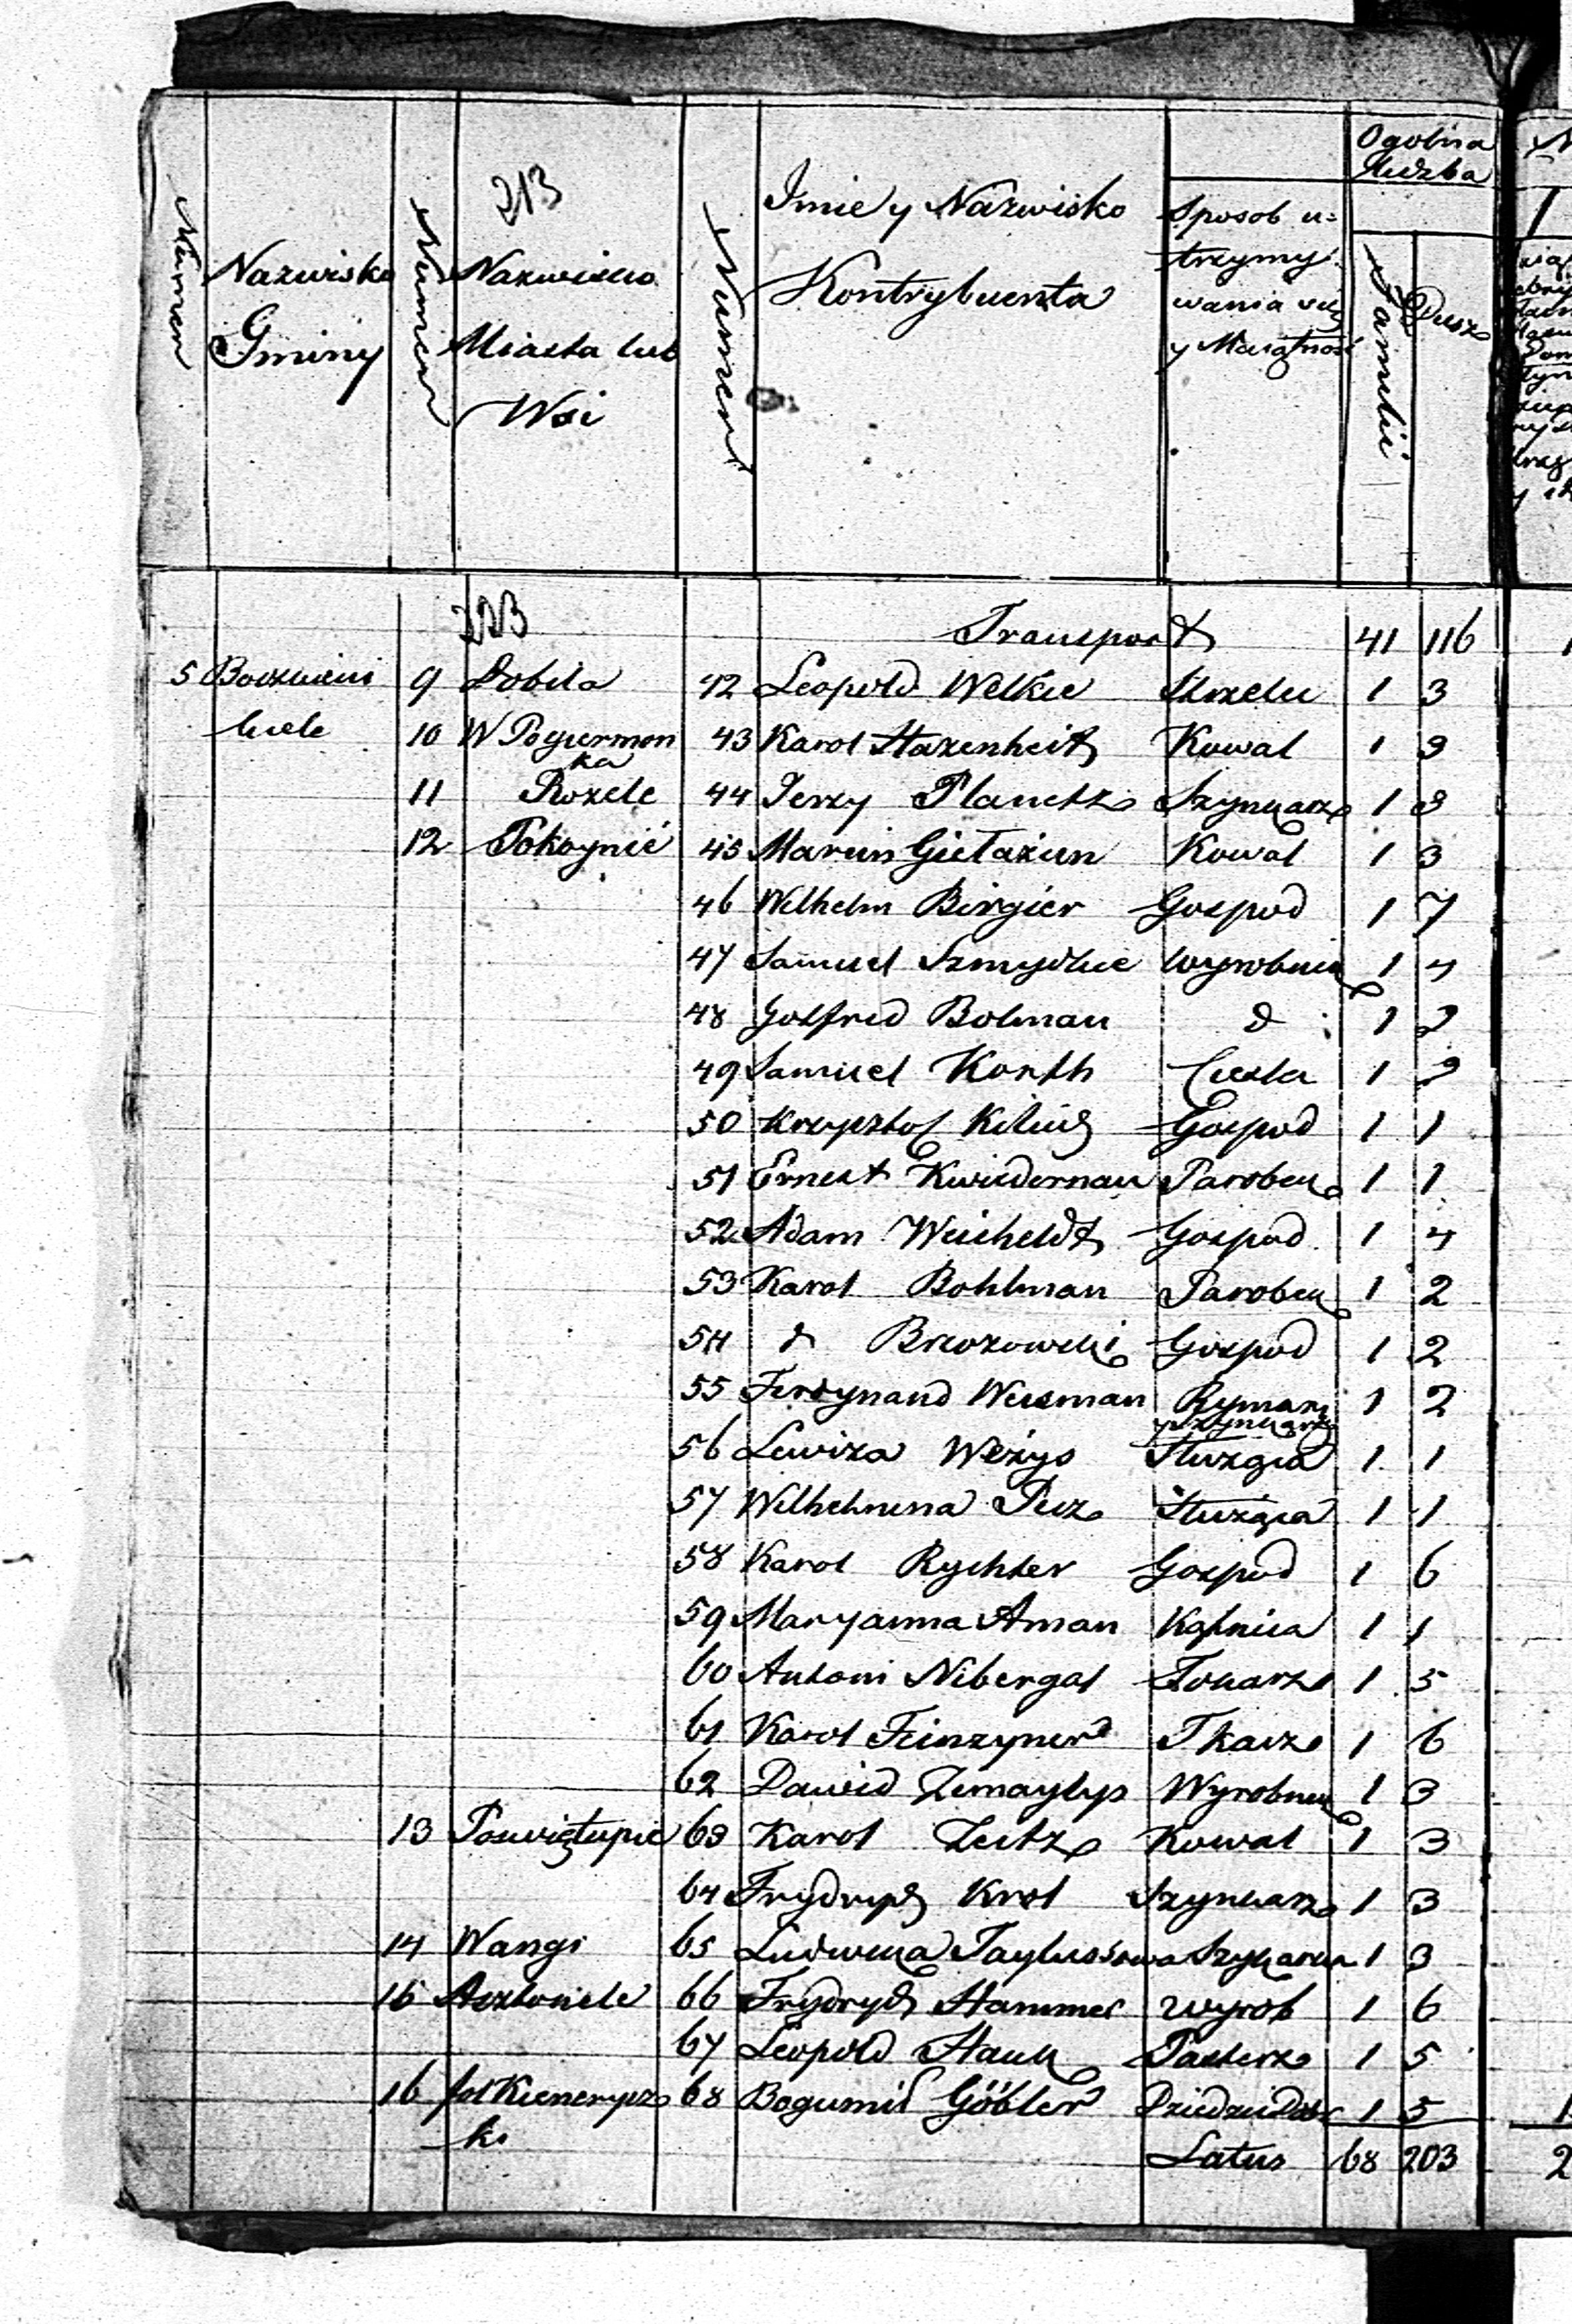 213
Numer
Nazwisko Gminy
Numer
Nazwisko Miasta lub Wsi
Numer
Imie y Nazwisko Kontrybuenta
Sposob u=
trzymy
wania się
y Maiątność
Ogolna
liczba
Familii
Dusz
223
Transport 41 116
5 9 Dobila 42 Leopold Welkie Strzelec 1 3
10 W Pogiermon 43 Karol Hazenheit Kowal 1 3
ka
11 Rozele 44 Jerzy Planetz Szynkarz 1 3
12 Pokoynie 45 Marcin Giełażun Kowal 1 3
46 Wilhelm Birgier Gospod 1 7
47 Samuel Szmydke Wyrobnik 1 4
48 Gotfrid Bolman d 1 2
49 Samuel Korth Ciesla 1 2
50 Krzysztof Kiliuś Gospod 1 1
51 Ernest Kwiedernau Parobek 1 1
52 Adam Weicheldt Gospod 1 4
53 Karol Bohlman Parobek 1 2
54 d Brzozowski Gospod 1 2
55 Ferdynand Weisman Rymarz 1 2
y szynkarz
56 Lewiza Weżys Służąca 1 1
57 Wilhelmina Pecz Służąca 1 1
58 Karol Rychter Gospod 1 6
59 Maryanna Aman Kątnica 1 1
60 Antoni Nibergal Tokarz 1 5
61 Karol Feinzyner Tkacz 1 6
62 Dawid Zemaytys Wyrobnik 1 3
13 Poswiętupie 63 Karol Zeitz Kowal 1 3
64 Frydrych Krol Szynkarz 1 3
14 Wangi 65 Ludwika Taylusowa Szynkarka 1 3
15 66 Frydrych Hammer Wyrob 1 6
67 Leopold Hauk Pasterz 1 5
16 fol 68 Bogumił Göbler 1 5
ki
Latus 68 203